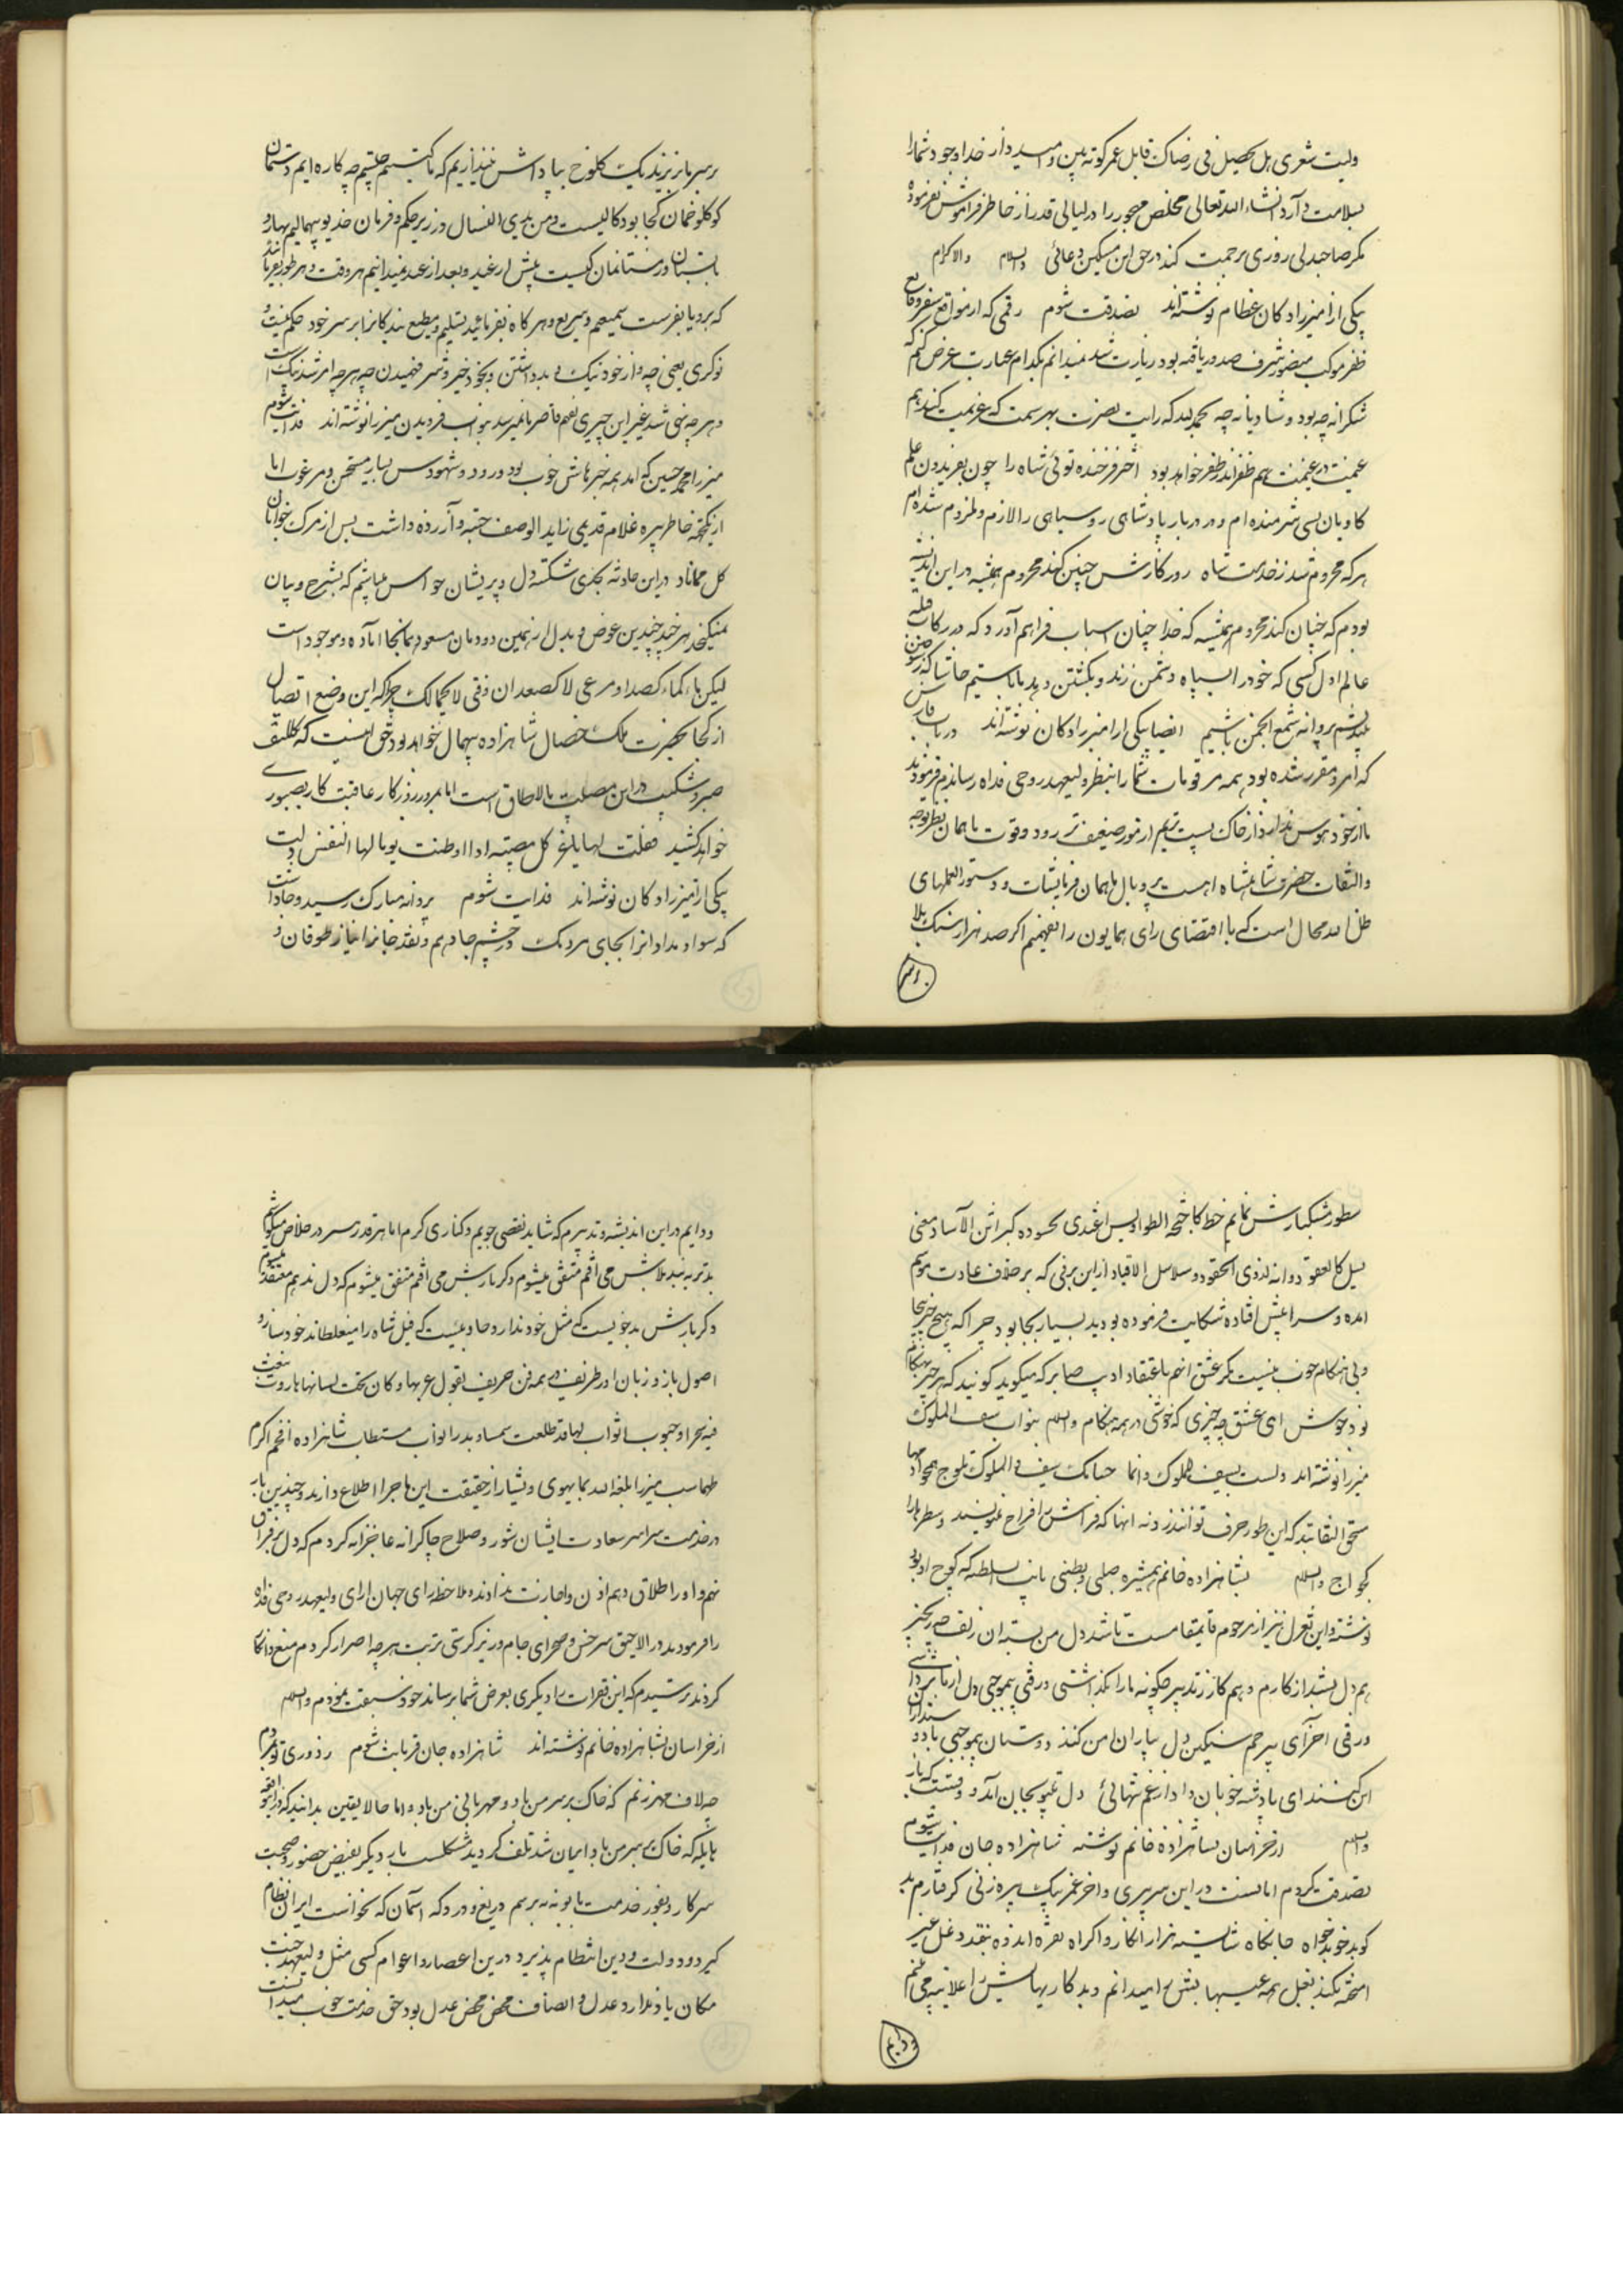 ولیت شعری هل یحصل فی رضاک قابل عمر کوته بین و امیدوار خدا وجود شما را
بسلامت دارد انشاء الله تعالی مخلص مهجور را در لیالی قدر از خاطر فراموش نفرموده
مگر صاحبدلی روزی برحمت کند در حق این مسکین دعائی والسلام والاکرام
یکی از میرزادگان عظام نوشته‌اند تصدقت شوم رقمی که از مواقع سفر و قایع
ظفر موکب منصور شرف صدور یافته بود زیارت شد نمیدانم بکدام عبارت عرض کنم که
شکرانه چه بود و شادیانه چه بحمدلله که رایت نصرت بهر سمت که عزیمت کند هم
غنیمت در غنیمت هم ظفر اندر ظفر خواهد بود اختر فرخنده توئی شاه را چون بفریدون علم
کاویان بسی شرمنده‌ام و در دربار پادشاهی روسیاهی را لازم و ملزوم شده‌ام
هر که محروم شد ز خدمت شاه روزگارش چنین کند محروم همیشه در این اندیشه
بودم که چنان کند محروم همیشه که خدا چنان اسباب فراهم آورد که در رکاب قبله
عالم اول کسی که خود را بسپاه دشمن زند و بکشتن دهد ما باشیم حاشا که
پروانه شمع انجمن باشیم ایضا بیکی از امیرزادگان نوشته‌اند در باب فارس
که امر و مقرر شده بود همه مرقومات شما را بنظر ولیعهد روحی فداه رساندم فرمودند
ما از خود هوس نداریم از خاک پست تریم از مور ضعیف تر زور و قوت ما همان نظر توجه
والتفات حضرت شاهنشاه است پر و بال ما همان فرمایشات و دستورالعملهای
ظل الله محال است که با اقتضای رای همایون را نفهمیم اگر صد هزار سنگ بلا
بر سر
بر سر ما بریزند یک کلوخ بپاداش نیندازیم که ما کیستیم چیستیم چه کاره‌ایم دستمان
کو کلوخمان کجا بود کالیت من یدی الغسال و زیر حکم و فرمان خدیو بیهمالیم بهار و
تابستان و زمستانمان کیست پیش از غد و بعد از غد نمیدانیم هر وقت و هر طور بفرمایند
که برو یا بفرست سمیعیم و سریع و هر گاه بفرمائید تسلیم و مطیع بندگانرا بر سر خود حکم نیست و
نوکری یعنی چه و از خود نیک و بد داشتن و بخود خیر و شر فهمیدن چه هر چه امر شد نیک است
و هر چه نهی شد غیر این چیزی بفهم قاصر ما نمیرسد بنواب فریدون میرزا نوشته‌اند فدایت شوم
میرزا محمد حسین که آمد همه خبرهاش خوب بود ورود و شهودش بسیار مستحسن و مرغوب اما
از نکته خاطر پیره غلام قدیمی زایدالوصف خسته و آزرده داشت پس از مرگ جوانان
گل مماناد در این حادثه بحدی شکسته دل و پریشان حواس میباشم که بشرح و بیان
نمیگنجد هر چند چندین عوض و بدل از همین دودمان مسعود بما نجا آماده و موجود است
لیکن ماء کماء کصدا و مرعی لا کصعدان و فتی لا کمالک چرا که این وضع اتصال
از کجا بحضرت ملک خصال شاهزاده بیهمال خواهد بود حق اینست که تکلیف
صبر و شکیب در این مصیبت بالاطاق است اما بمرور روزگار عاقبت کار بصبوری
خواهد کشید فقلت لها یا عز کل مصیبة اذا وطنت یوما لها النفس ذلت
یکی از میرزادگان نوشته‌اند فدایت شوم پروانه مبارک رسید و جا داشت
که سواد مداد آنرا بجای مردمک در چشم جا دهم و نقد جانرا نیاز طوفان و
سطور مشکبارش نمایم خط کاجنحة الطواویس اغتدی لحسوده کبراثن الآساد معنی
یمیل کالعقود و انه لذوی الحقود و سلاسل الاقیاد از این برفی که بر خلاف عادت موسم
آمده و سرما پیش افتاده شکایت فرموده بودید بسیار بجا بود چرا که هیچ چیز بیجا
و بی هنگام خوب نیست مگر عشق آنهم باعتقاد ادیب صابر که میگوید گویند که هر چیز بهنگام
بود خوش ای عشق چه چیزی که خوشی در همه هنگام والسلام بنواب سیف الملوک
میرزا نوشته‌اند ولست بسیف الملوک و انما حسامک سیف والملوک تلوح
مستحق التفاتند که این طور حرف توانند زد نه آنها که فراش را فراج مینویسند و سطرها را
کج و اج والسلام بشاهزاده خانم همشیره صلبی و بطنی نایب السلطنه که کوچ او بود
نوشته و این تغزل نیز از مرحوم قایمقامست تا شد دل من بسته آن زلف چو زنجیر
هم دل بشد از کارم و هم کار ز تدبیر چگونه ما را بگذاشتی و رفتی بیموجبی دل از ما برداشتی
و رفتی آخر ای بیرحم سنگین دل بیاران من کنند دوستان بیموجبی با دوستداران
این کنند ای پادشه خوبان داد از غم تنهائی دل بیتو بجان آمد وقتست که باز آئی
والسلام از خراسان بشاهزاده خانم نوشته شاهزاده جان فدایت شوم
تصدقت گردم اما لست در این سر پیری و آخر عمر بیک پیره زنی گرفتارم بد
گو بد خو بدخواه جانکاه شایسته هزار انکار و اکراه نقره اندوده بنقد دغل غیر
آمیخته بکند بغل همه عیبهایش را میدانم و بدکاریهایش را علانیه می بینم
و دایم
و دایم در این اندیشه و تدبیرم که شاید نقصی جویم و کناری گیرم اما هر قدر سر در خلاص میکوشم
بدتر به بند بلایش می افتم متفق میشوم و گر بارش می افتم متفق میشوم که دل ندهم معتقد میشوم
و گر بارش بدخوئیست که مثل خود ندارد و جادوئیست که فیل شاه را میغلطاند خود ساز و
اصول باز و زبان آور ظریف و همه فن حریف بقول عربها و کان تحت لسانها هاروت ینفث
فیه سحرا و حبوب اثواب لها قد طلعت بسماء بدرا نواب مستطاب شاهزاده افخم اکرم
طهماسب میرزا بلغه الله بما یهوی و یشاء از حقیقت این ماجرا اطلاع دارند و چندین بار
در خدمت سراسر سعادت ایشان شور و صلاح چاکرانه عاجزانه کردم که دل بر فراق
نهم و او را طلاق دهم اذن و اجازت ندادند و ملاحظه رای جهان آرای ولیعهد روحی فداه
را فرمودند و الا حق سرخس و صحرای جام و زیر کرسی تربت هر چه اصرار کردم منع و انکار
کردند ترسیدم که این فقرات را دیگری بعرض شما برساند خود سبقت نمودم والسلام
از خراسان بشاهزاده خانم نوشته‌اند شاهزاده جان قربانت شوم ز دوری تو نمردم
چه لاف مهر زنم که خاک بر سر من باد و مهربانی من باد اما حالا یقین بدانید که در این واقعه
هایله که خاک بر سر من باد ایمان شد تلف گردید مشکلست بار دیگر بفیض حضور و صحبت
سرکار و بفوز خدمت بانو نه برسم دریغ و درد که آسمان که نخواست ایران نظام
گیرد و دولت و دین انتظام پذیرد در این اعصار و اعوام کسی مثل ولیعهد جنت
مکان یاد ندارد عدل و انصاف محض محض عدل بود حق خدمت خوب میدانست